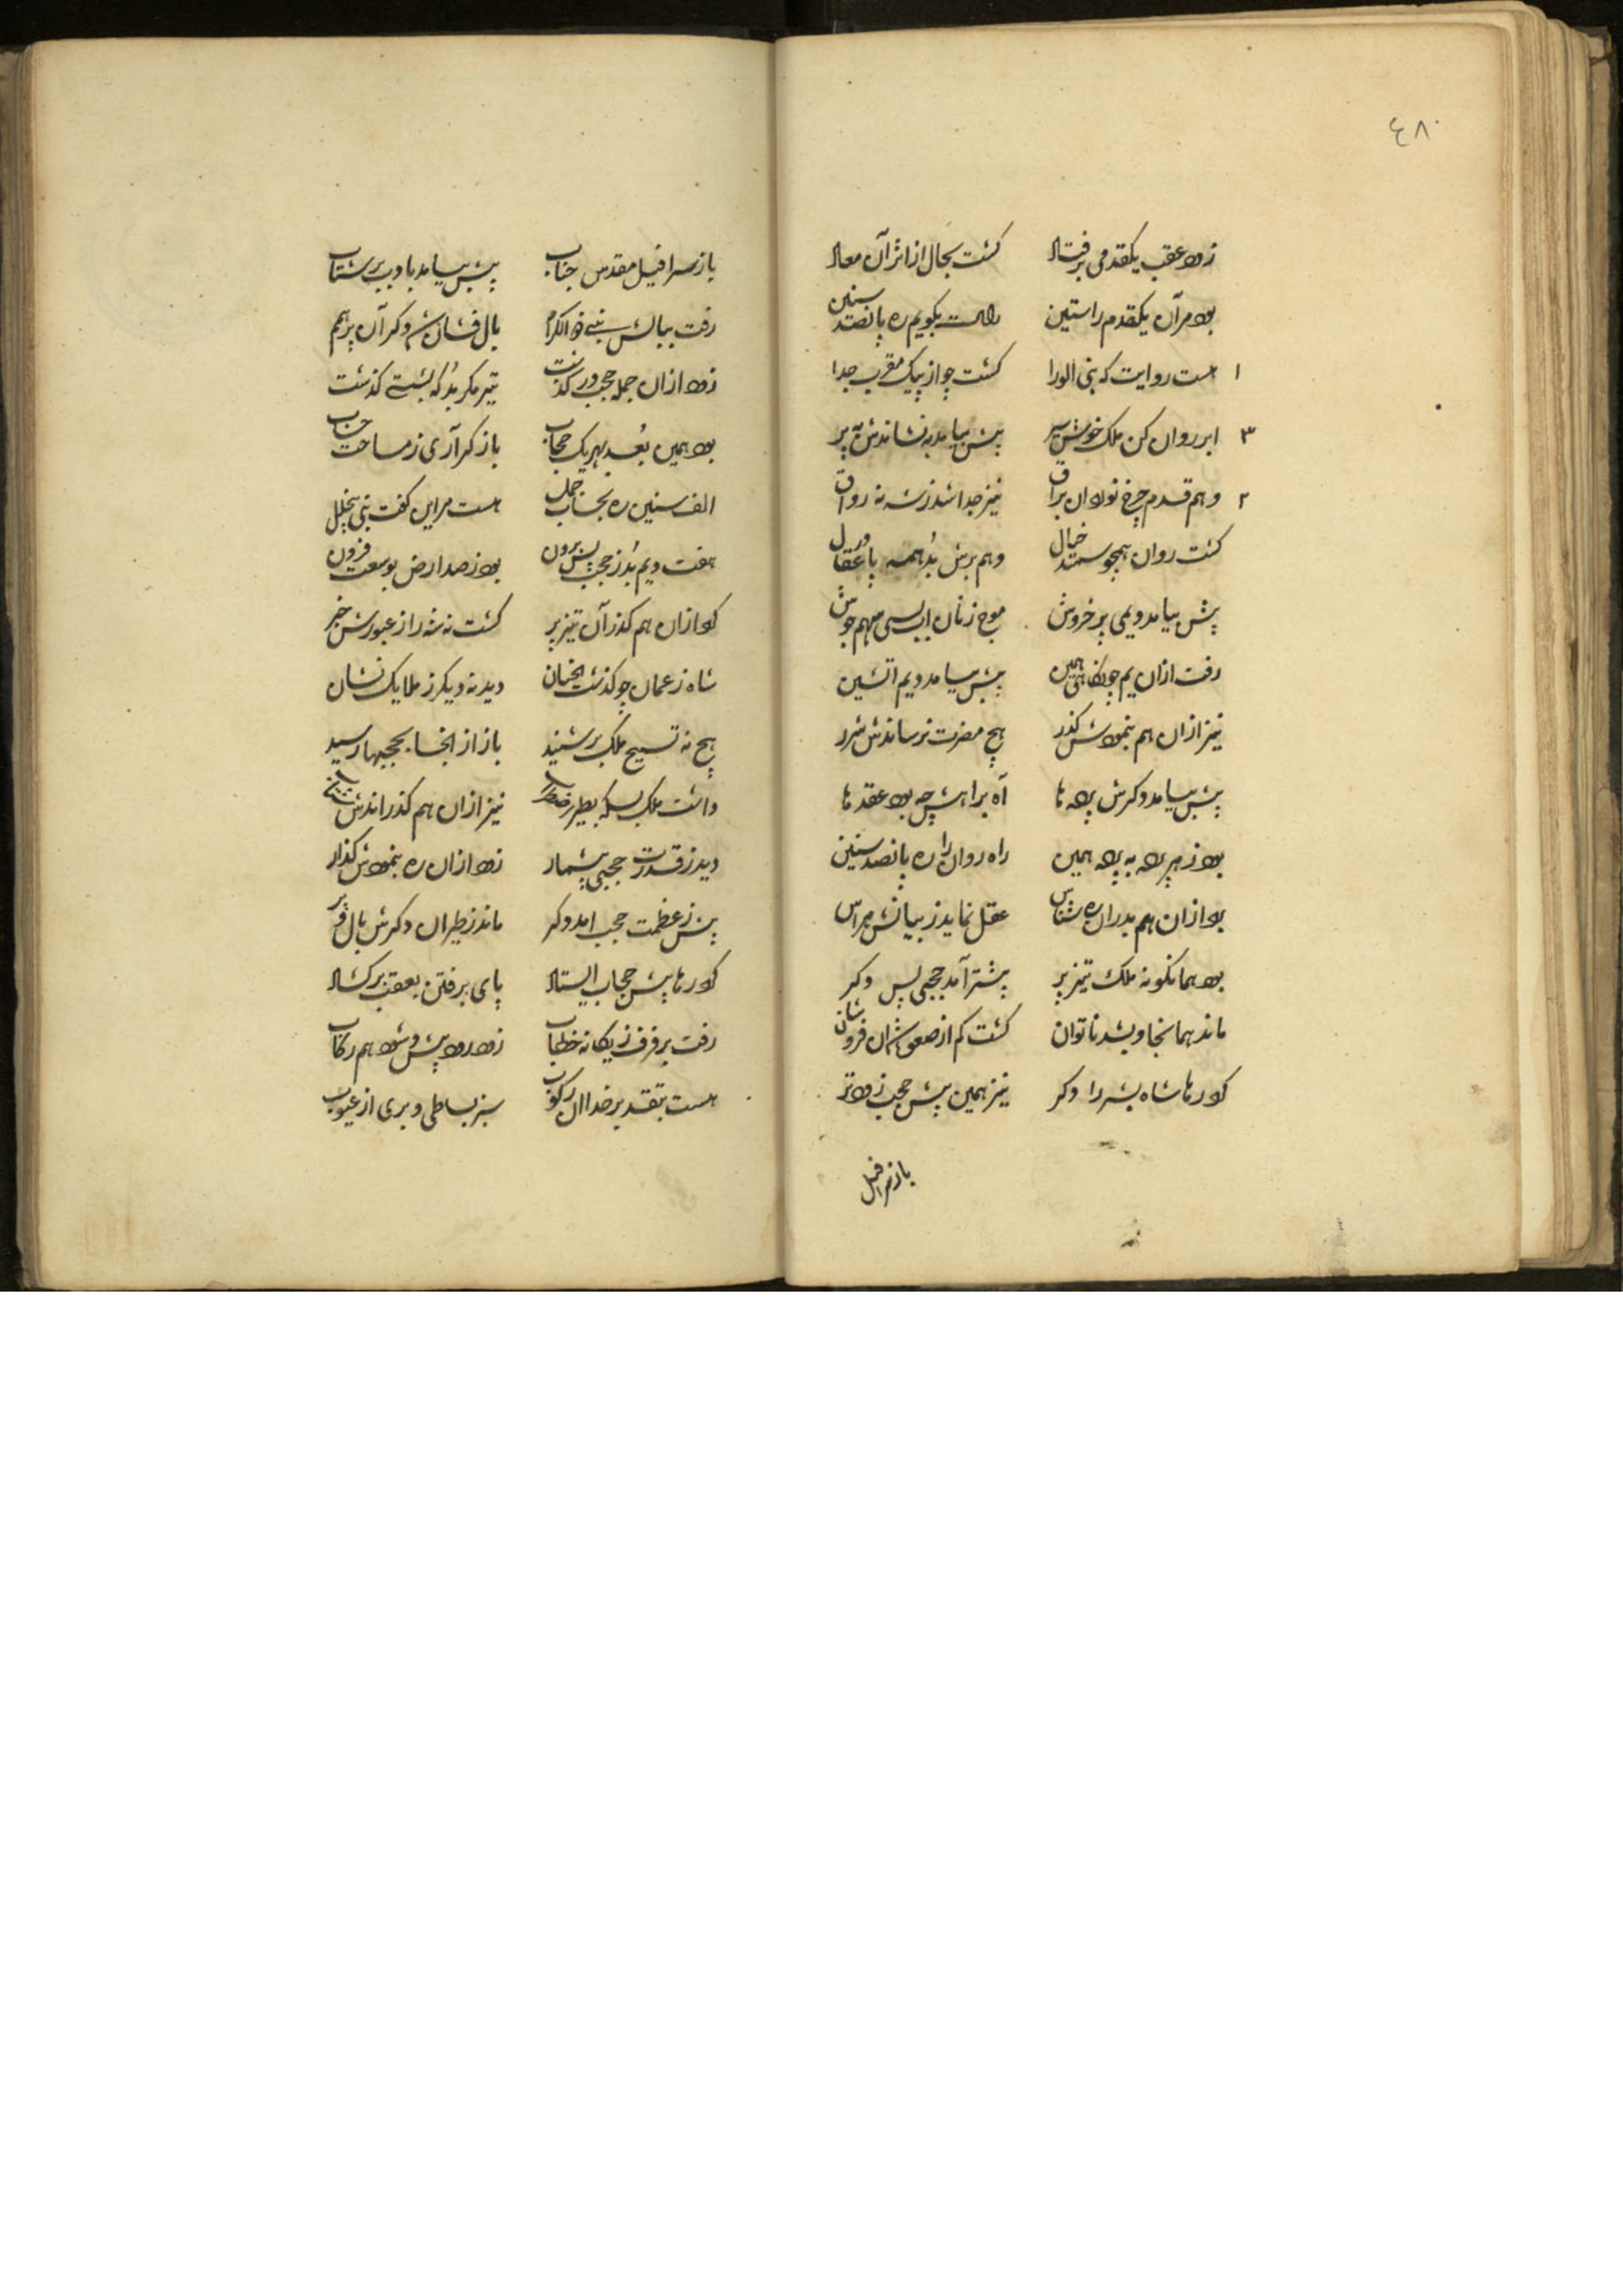 ٤٨٠
زود عقب یکقدمی برفتاد کشت بحال از اثر آن معاد
بود مر آن یکقدم راستین راست بکویم ره پانصد سنین
١ هست روایت که نبی الورا کشت چو از پیک مقرب جدا
٣ ابر روان کن ملک خوش سیر پیش بیامد به نشاندش به پر
٢ و هم قدم چرخ نوردان براق نیز جدا شد ز شه نه رواق
کشت روان همچو سمند خیال و هم برش بد همه پا عقال
پیش بیامد و یمی پر خروش موج زنان
رفت ازان یم پیش بیامد و یم اتشین
نیز ازان هم بنمودش کذر هیچ مضرت نرساندش شرر
پیش بیامد و کرش پرده ها آه براهش چه بود عقده ها
بود ز هر پرده به پرده همین راه روان را ره پانصد سنین
بود ازان هم بدران ره شناس عقل نماید ز بیانش هراس
بود همانکونه ملک تیز پر پیشتر آمد حجبی پس و کر
ماند همانجا و بشد ناتوان کشت کم از صعوه
کرد رها شاه بشر را و کر نیز همین پیش حجب زودتر
باز سرافیل
باز سرافیل مقدس جناب پیش بیامد بادب پر شتاب
رفت ببالش نبی ذو الکرم بال فشان شد و کر آن پر بهم
زود ازان جمله حجب در کذشت تیر مکر بد که بشستی کذشت
بود همین بعد بهر یک حجاب باز کر آری ز مساحت حساب
الف سنین ره هست مر این کفت نبی بیخلل
هفت و یم بد ز حجب پس برون بود ز صد ارض بوسعت فزون
کرد ازان هم کذر آن تیز پر کشت نه شه را ز عبورش خبر
شاه ز عمان چو کذشت انچنان دید نه دیکر ز ملایک نشان
هیچ نه تسبیح ملک بر شنید باز از انجا بحجبها رسید
داشت ملک نیز ازان هم کذراندش
دید ز قدرت حجبی بیشمار زود ازان ره بنمودش کذار
پیش ز عظمت حجب امد و کر ماند ز طیران و کرش بال و پر
کرد رها پیش حجاب ایستاد پای برفتن بعقب بر کشاد
رفت برفرف ز یکانه خطاب زود رود پیش و شود هم رکاب
هست بتقدیر خدا ان رکوب سبز بساطی و بری از عیوب